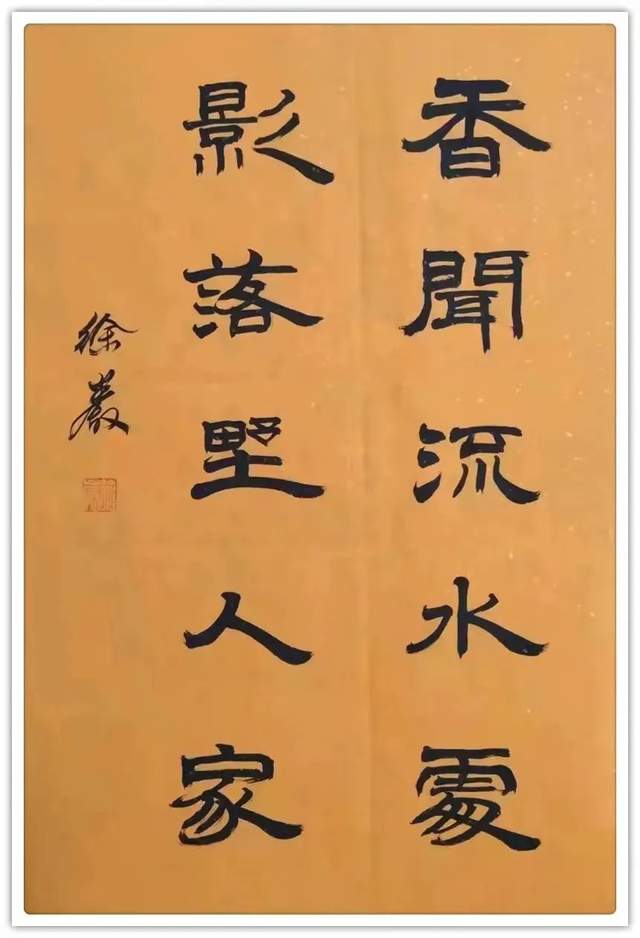 香聞流水處
影落野人家
徐嚴